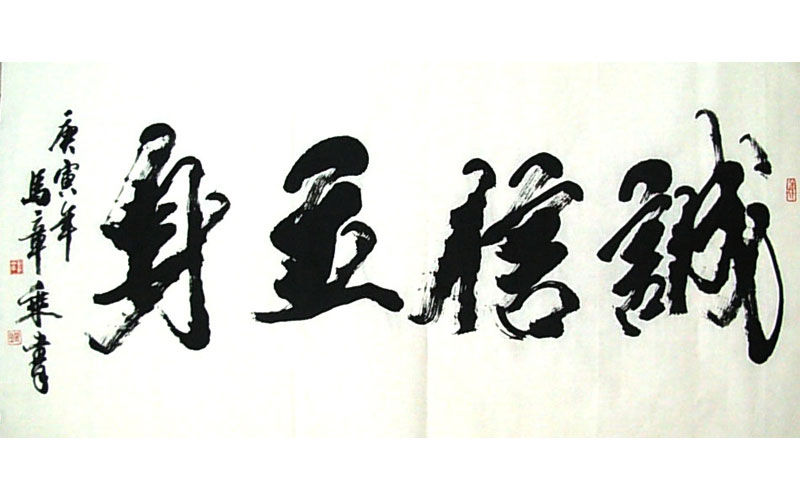 誠信立身
庚寅年
馬章乘書